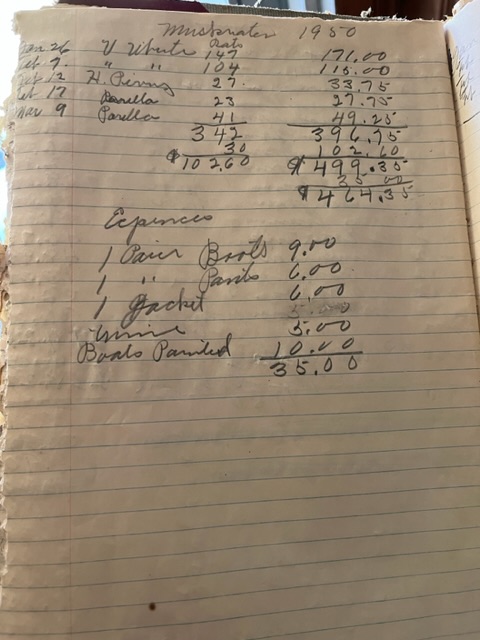 Muskrates 1950
Rats
Jan 26 V 147 171.00
Feb 7. " " 104 115.00
Feb 12 H. 27. 33.75
Feb 17 Parella 23 27.75
Mar 9 Parella 41 49.25
342 396.75
30 102.60
$102.60 $499.35
35 00
$464.35
Expences
1 Pair Boots 9.00
1 " Pants 6.00
1 Jacket 6.00
5.00
Boats Painted 10.00
35.00